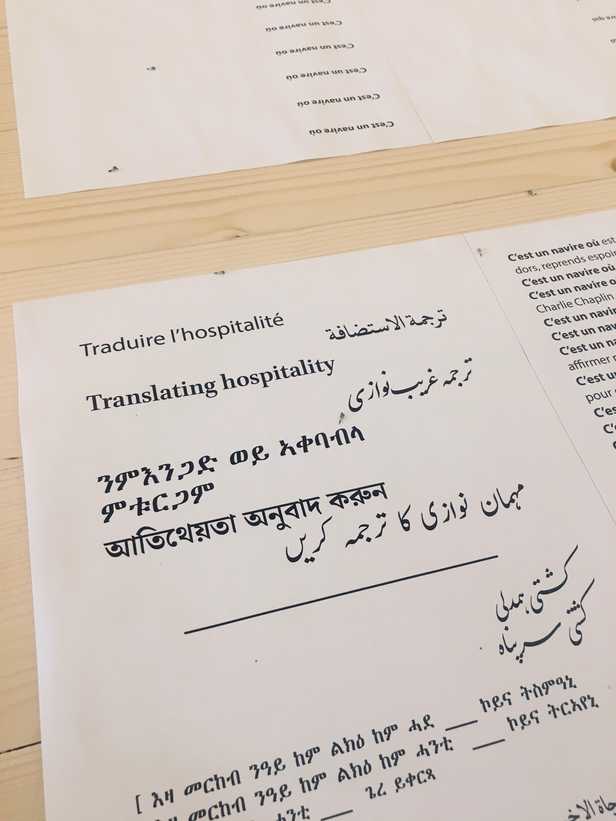 C'est un navire où
C'est un navire où
C'est un navire où
C'est un navire où
C'est un navire où
C'est un navire où
Traduire l'hospitalité
ترجمة الاستضافة
Translating hospitality
ترجمہ غریب نوازی
ንምእንጋድ ወይ አቀባብላ
ምቱርጋም
আতিথেয়তা অনুবাদ করুন
مہمان نوازی کا ترجمہ کریں
کشتی ہمدلی
کشتی سرپناه
[ እዛ መርከብ ንዓይ ከም ልክዕ ከም ሓደ ___ ኮይና ትስምዓኒ
መርከብ ንዓይ ከም ልክዕ ከም ሓንቲ ___ ኮይና ትርእየኒ
ሓንቲ ___ ጌረ ይቀርጻ
C'est un navire où est
dors, reprends espoir
C'est un navire où
C'est un navire o
Charlie Chaplin
C'est un navir
C'est un na
C'est un na
affirmer
C'est u
pour
C'es
C'